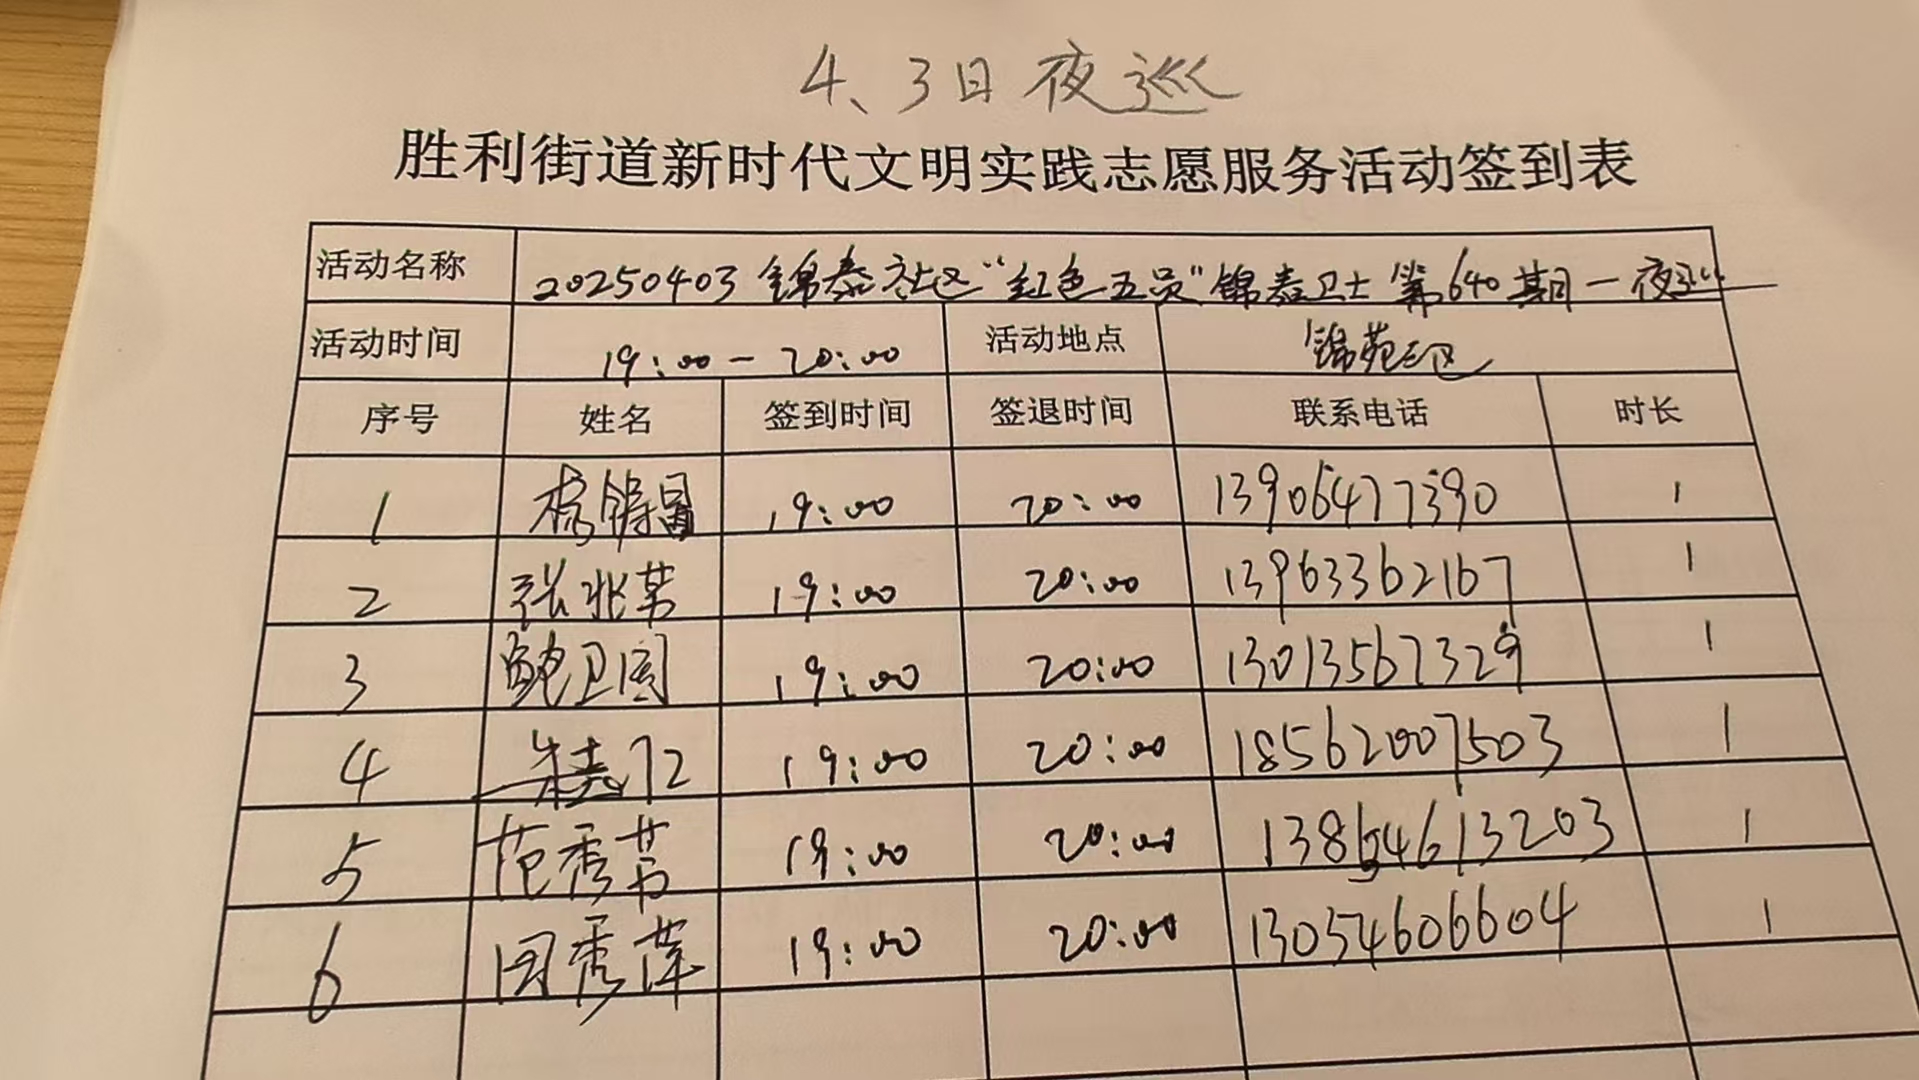 4、3日夜巡
胜利街道新时代文明实践志愿服务活动签到表
活动名称 20250403锦泰社区“红色五员”锦泰卫士第640期一夜巡
活动时间 19:00-20:00 活动地点 锦苑三区
序号 姓名 签到时间 签退时间 联系电话 时长
1 19:00 20:00 13906477390 1
2 张兆芳 19:00 20:00 13963362167 1
3 鲍卫国 19:00 20:00 13013567329 1
4 19:00 20:00 18562007503 1
5 范秀芳 19:00 20:00 13864613203 1
6 周秀萍 19:00 20:00 13054606604 1